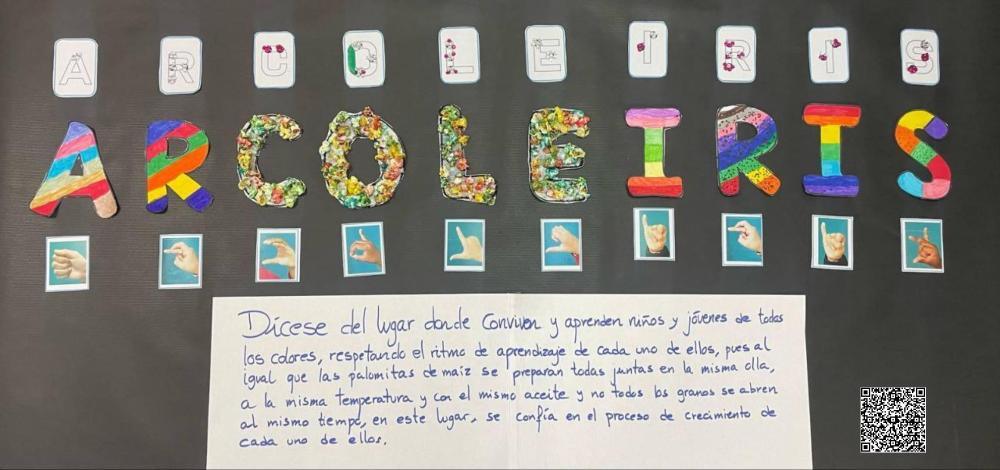 A R C O L E I R I S
ARCOLEIRIS
Dícese del lugar donde conviven y aprenden niños y jóvenes de todos
los colores, respetando el ritmo de aprendizaje de cada uno de ellos, pues al
igual que las palomitas de maiz se preparan todas juntas en la misma olla,
a la misma temperatura y con el mismo aceite y no todos los granos se abren
al mismo tiempo, en este lugar, se confía en el proceso de crecimiento de
cada uno de ellos.